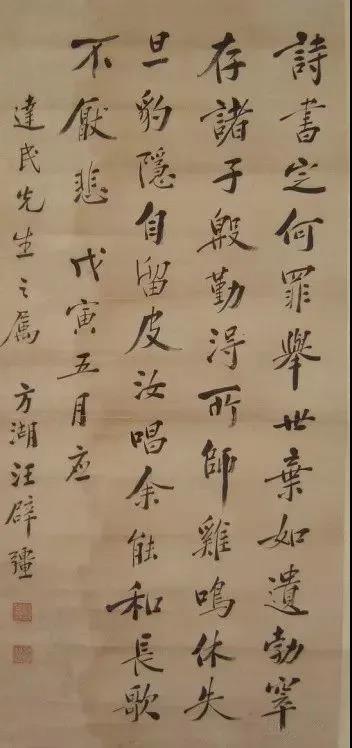 詩書定何罪舉世棄如遺勃窣
存諸子殷勤得所師雞鳴休失
旦豹隱自留皮汝唱余能和長歌
不厭悲 戊寅五月应
達民先生之屬 方湖汪辟疆